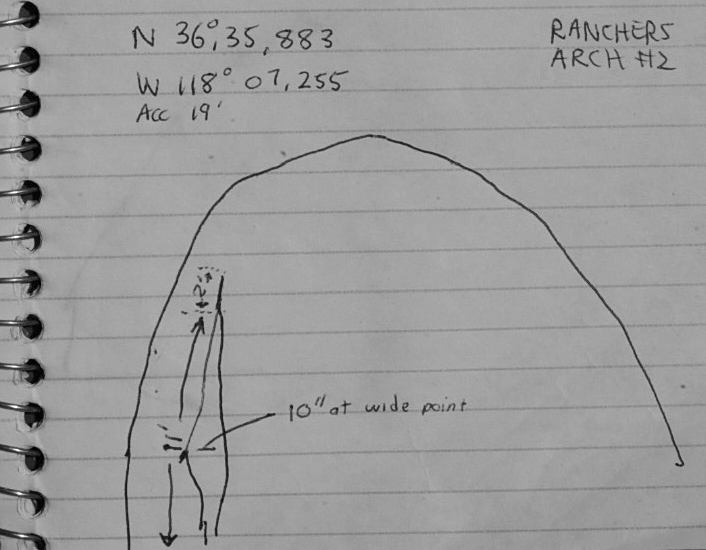 N 36°,35,883
W 118° 07,255
Acc 19'
RANCHERS
ARCH #2
2"
11'
10" at wide point